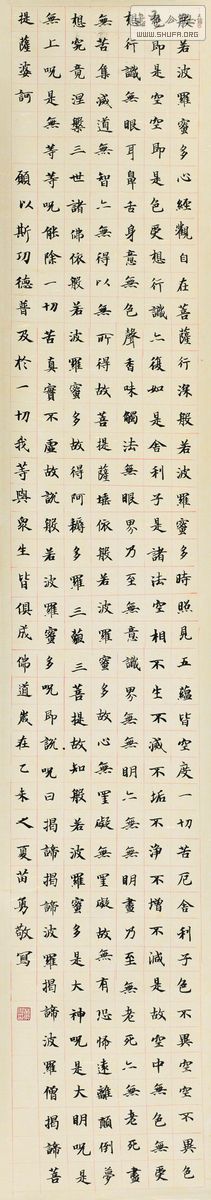 般若波羅蜜多心經觀自在菩薩行深般若波羅蜜多時照見五蘊皆空度一切苦厄舍利子色不異空空不異色
色即是空空即是色受想行識亦復如是舍利子是諸法空相不生不滅不垢不淨不增不減是故空中無色無受
想行識無眼耳鼻舌身意無色聲香味觸法無眼界乃至無意識界無無明亦無無明盡乃至無老死亦無老死盡
無苦集滅道無智亦無得以無所得故菩提薩埵依般若波羅蜜多故心無罣礙無罣礙故無有恐怖遠離顛倒夢
想究竟涅槃三世諸佛依般若波羅蜜多故得阿耨多羅三藐三菩提故知般若波羅蜜多是大神呪是大明呪是
無上呪是無等等呪能除一切苦真實不虛故說般若波羅蜜多呪即說呪曰揭諦揭諦波羅揭諦波羅僧揭諦菩
提薩婆訶 願以斯功德普及於一切我等與眾生皆俱成佛道歲在乙未之夏苗勇敬寫
WWW.SHUFA.ORG